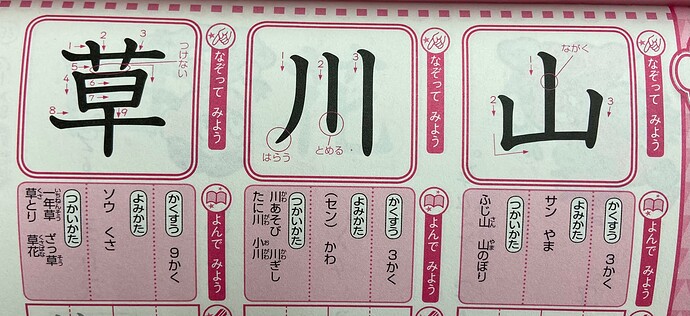 なぞって みよう
山
ながく
1
2
3
よんで みよう
かくすう
3かく
よみかた
サン やま
つかいかた
ふじ山 山のぼり
さん やま
なぞって みよう
川
1
2
3
はらう
とめる
よんで みよう
かくすう
3かく
よみかた
(セン) かわ
つかいかた
川あそび 川ぎし
かわ かわ
たに川 小川
がわ がわ
なぞって みよう
草
つけない
1
2
3
4
5
6
7
8
9
よんで みよう
かくすう
9かく
よみかた
ソウ くさ
つかいかた
一年草 ざっ草
いちねんそう そう
草とり 草花
くさ くさばな